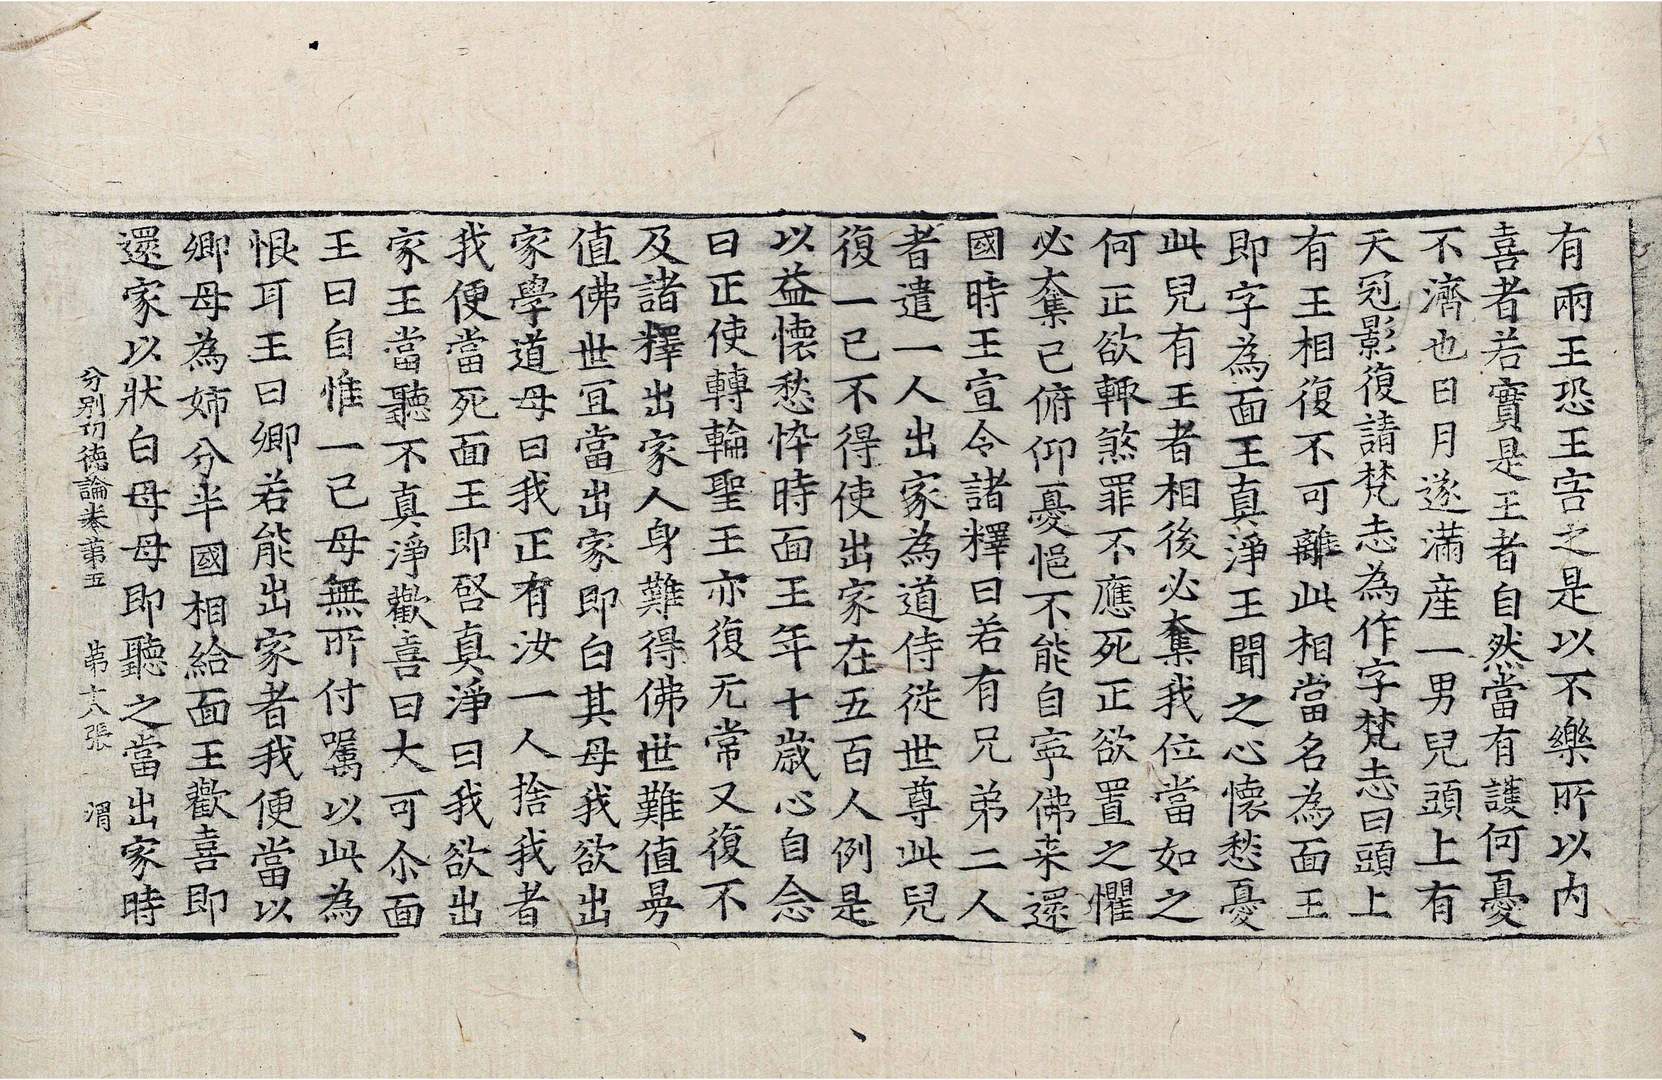 有兩王恐王害之是以不樂所以內
喜者若實是王者自然當有護何憂
不濟也日月遂滿産一男兒頭上有
天冠影復請梵志為作字梵志曰頭上
有王相復不可離此相當名為面王
即字為面王真淨王聞之心懷愁憂
此兒有王者相後必奪我位當如之
何正欲輙煞罪不應死正欲置之懼
必奪己俯仰憂悒不能自寧佛来還
國時王宣令諸釋曰若有兄弟二人
者遣一人出家為道侍從世尊此兒
復一已不得使出家在五百人例是
以益懷愁忰時面王年十歲心自念
曰正使轉輪聖王亦復无常又復不
及諸釋出家人身難得佛世難值曼
值佛世宜當出家即白其母我欲出
家學道母曰我正有汝一人捨我者
我便當死面王即啓真淨曰我欲出
家王當聽不真淨歡喜曰大可尒面
王曰自惟一己母無所付囑以此為
恨耳王曰卿若能出家者我便當以
卿母為姉分半國相給面王歡喜即
還家以狀白母母即聽之當出家時
分别功德論卷第五　第十六張　渭